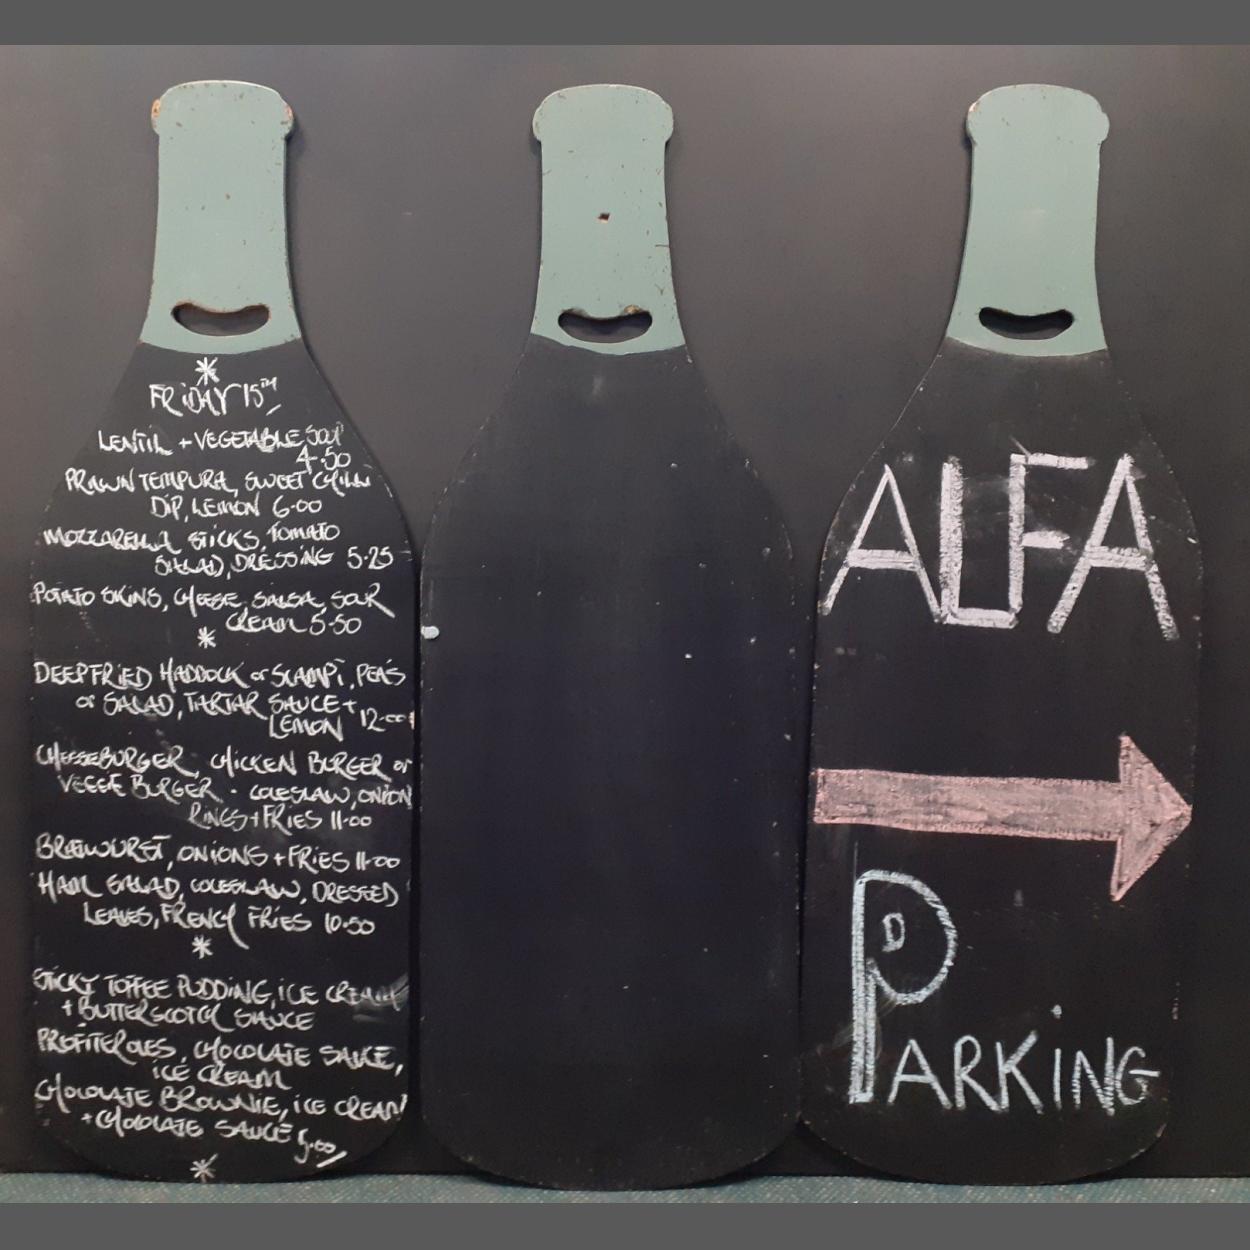 FRIDAY 15TH
LENTIL + VEGETABLE SOUP
4.50
PRAWN TEMPURA, SWEET CHILLI
DIP, LEMON 6.00
MOZZARELLA STICKS, TOMATO
SALAD, DRESSING 5.25
POTATO SKINS, CHEESE, SALSA, SOUR
CREAM 5.50
DEEPFRIED HADDOCK or SCAMPI, PEAS
or SALAD, TARTAR SAUCE +
LEMON 12.00
CHEESEBURGER, CHICKEN BURGER or
VEGGIE BURGER. COLESLAW, ONION
RINGS + FRIES 11.00
BRATWURST, ONIONS + FRIES 11.00
HAM SALAD, COLESLAW, DRESSED
LEAVES, FRENCH FRIES 10.50
STICKY TOFFEE PUDDING, ICE CREAM
+ BUTTERSCOTCH SAUCE
PROFITEROLES, CHOCOLATE SAUCE,
ICE CREAM
CHOCOLATE BROWNIE, ICE CREAM
+ CHOCOLATE SAUCE 5.00
ALFA
P
PARKING